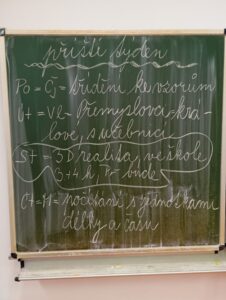 příští týden
Po = Čj = třídění ke vzorům
Út = Vl = Přemyslovci, krá-
lové, s učebnicí
St = 3D realita ve škole
3+4 h,
Čt = M = počítání s jednotkami
délky a času